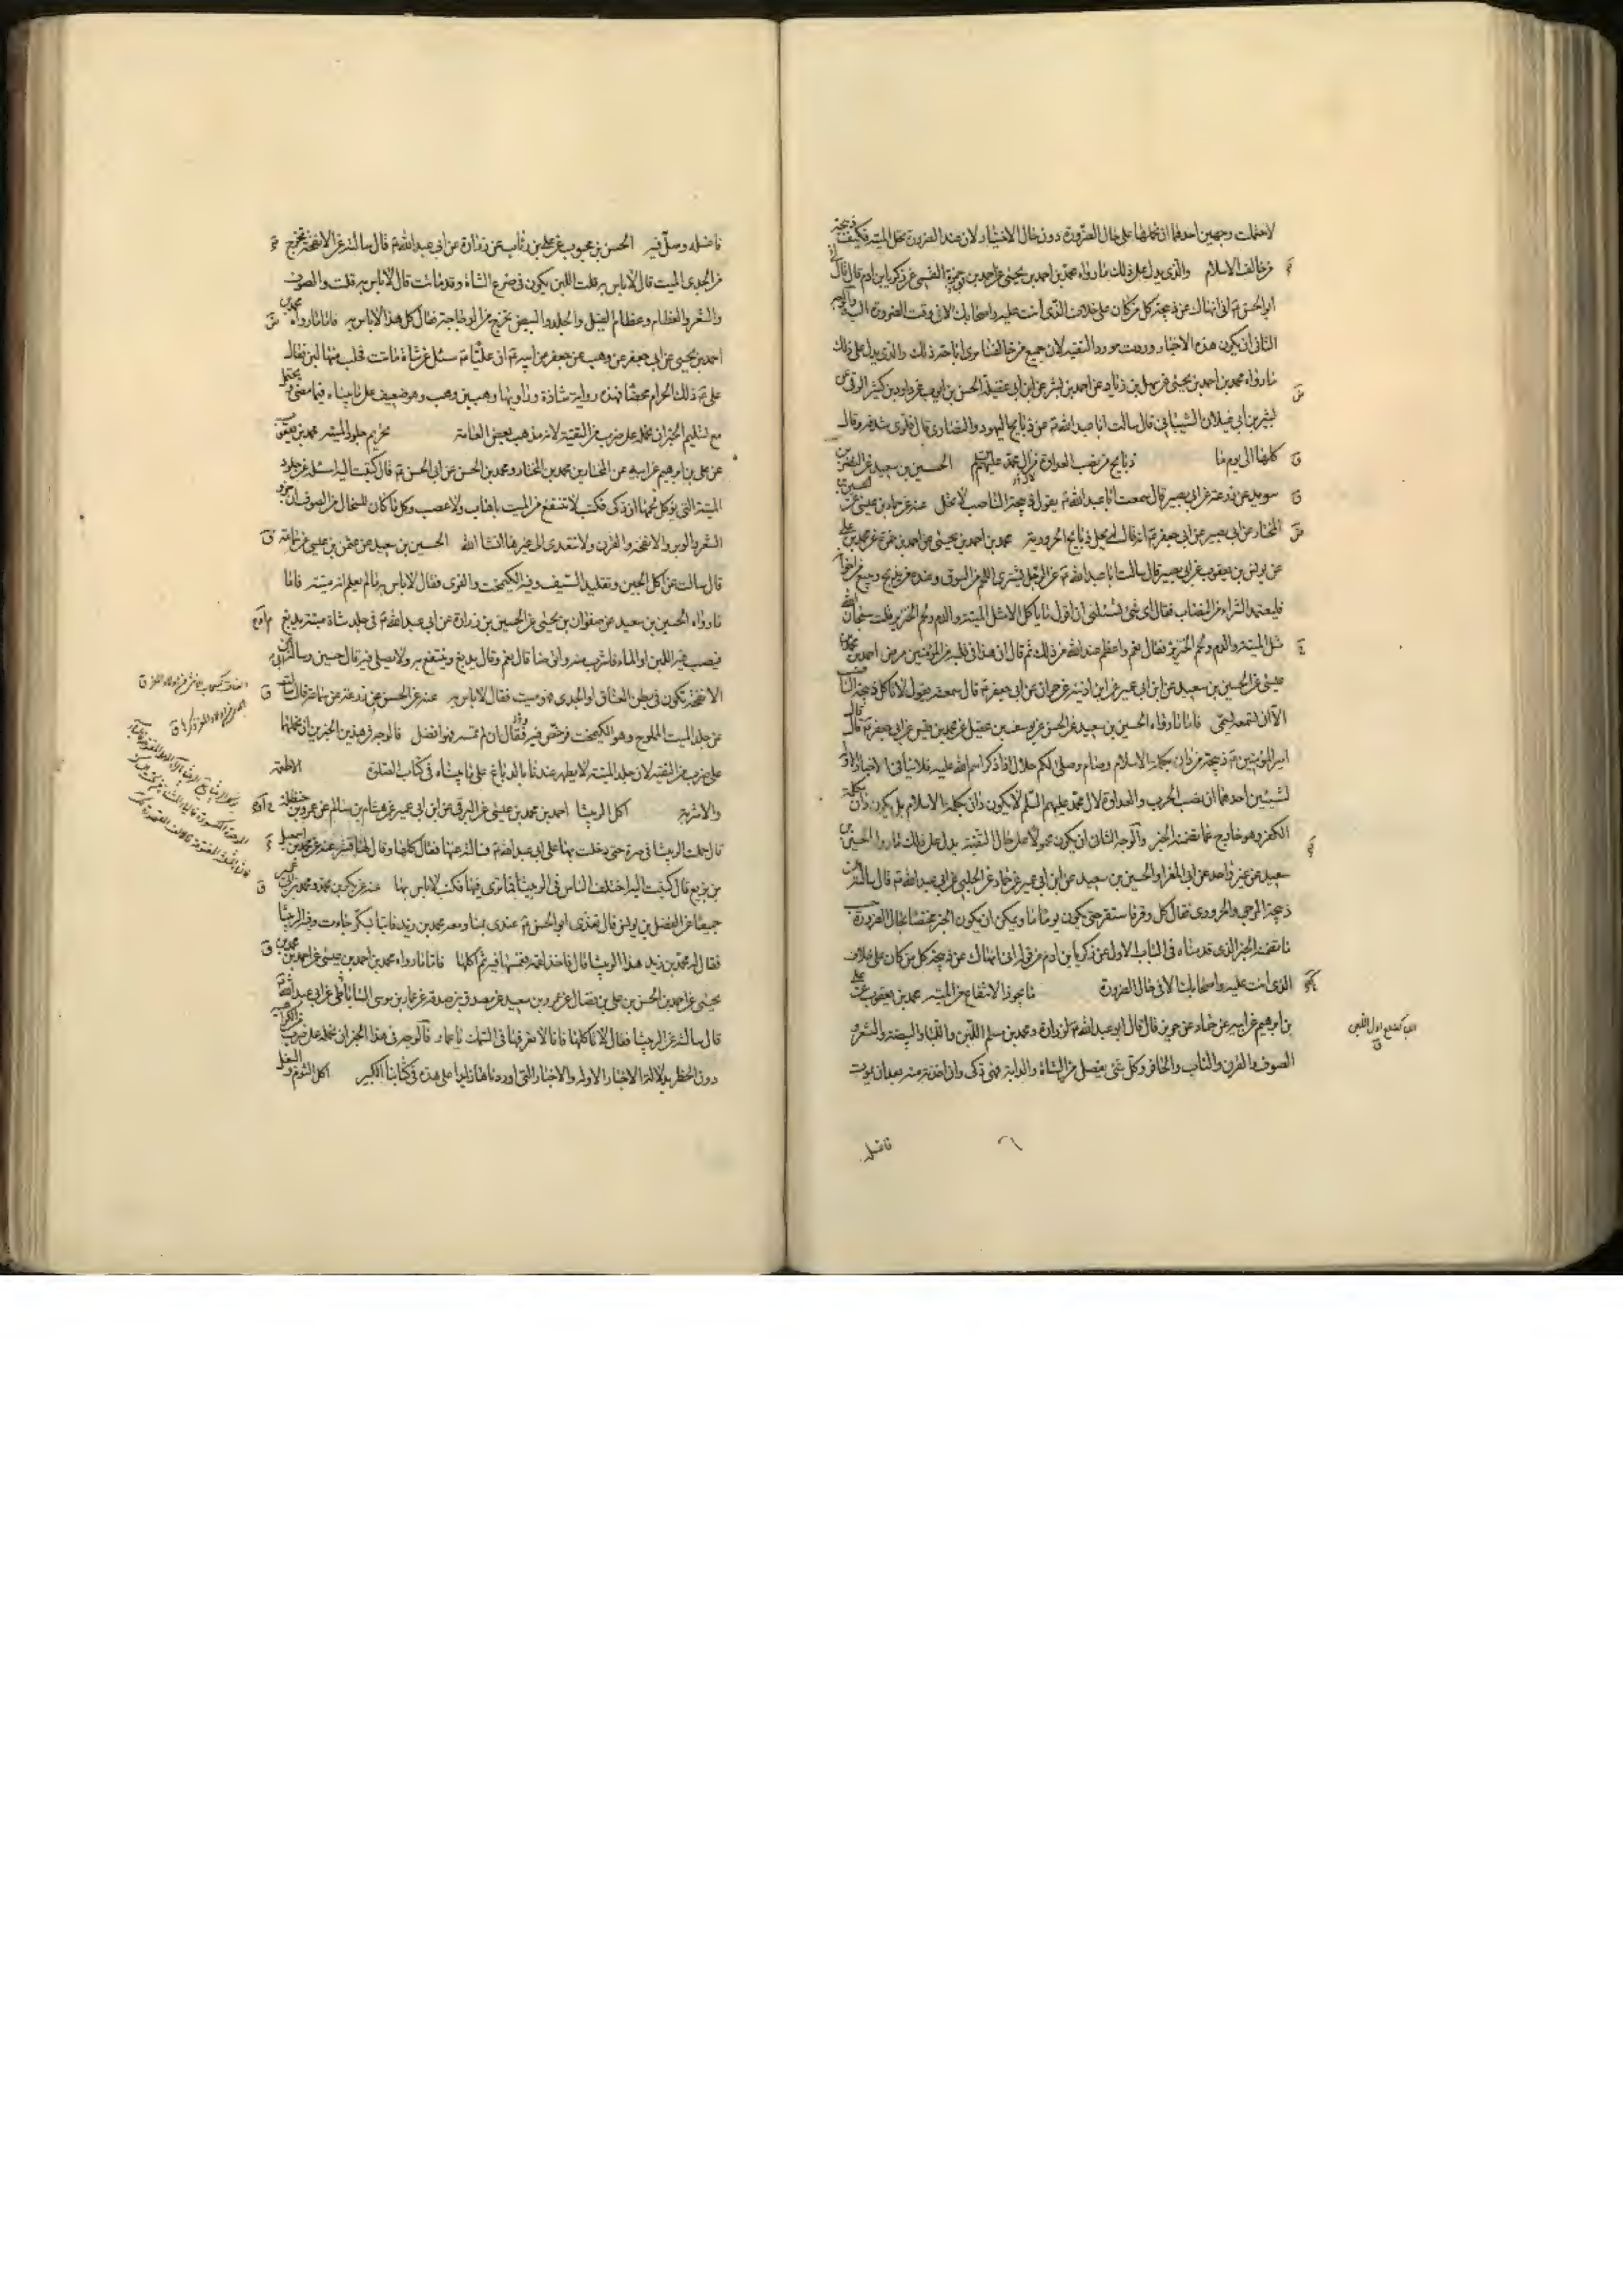 لاحتملت وجهين احدهما ان نحملها على حال الضرورة دون حال الاختيار لان عند الضرورة تحل الميتة فكيف ذبيحة
من خالف الاسلام والذي يدل على ذلك ما رواه محمد بن احمد بن يحيى عن احمد بن حمزة القمي عن زكريا بن ادم قال قال لي
ابو الحسن ع اني انهاك عن ذبيحة كل من كان على خلاف الذي انت عليه واصحابك الا في وقت الضرورة اليه والوجه
الثاني ان يكون هذه الاخبار وردت مورد التقية لان جميع من خالفنا يرى اباحة ذلك والذي يدل على ذلك
ما رواه محمد بن احمد بن يحيى عن سهل بن زياد عن احمد بن بشر عن ابن ابي عقيلة الحسن بن ايوب عن داود بن كثير الرقي عن
بشر بن ابي غيلان الشيباني قال سالت ابا عبد الله ع عن ذبايح اليهود والنصارى قال فلوى شدقه وقال
كلها الى يوم ما ذبايح من نصب العداوة لال محمد عليهم السلم الحسين بن سعيد عن النضر بن
سويد عن زرعة عن ابي بصير قال سمعت ابا عبد الله ع يقول ذبيحة الناصب لا تحل عنه عن حماد بن عيسى عن الحسين بن
المختار عن ابي بصير عن ابي جعفر ع انه قال لم يحل ذبايح الحرورية محمد بن احمد بن يحيى عن احمد بن حمزة عن محمد بن علي
عن يونس بن يعقوب عن ابي بصير قال سالت ابا عبد الله ع عن الرجل يشتري اللحم من السوق وعنده من يذبح ويبيع من اخوانه
فليعتمد الشراء من النصاب فقال اي شيء تسئلني ان اقول ما ياكل الا مثل الميتة والدم ولحم الخنزير قلت سبحان الله
مثل الميتة والدم ولحم الخنزير فقال نعم واعظم عند الله من ذلك ثم قال ان هذا في قلبه من المؤمنين مرض احمد بن محمد بن
عيسى عن الحسين بن سعيد عن ابن ابي عمير عن ابن اذينة عن حمران عن ابي جعفر ع قال سمعته يقول لا تاكل ذبيحة الناصب
الا ان تسمعه يسمي فاما ما رواه الحسين بن سعيد عن الحسن عن يوسف بن عقيل عن محمد بن قيس عن ابي جعفر ع قال قال
امير المؤمنين ع ذبيحة من دان بكلمة الاسلام وصام وصلى لكم حلال اذا ذكر اسم الله عليه فلا ينافي الاخبار الاولة
لشيئين احدهما ان نصب الحرب والعداوة لال محمد عليهم السلم لا يكون دان بكلمة الاسلام بل يكون دان بكلمة
الكفر وهو خارج عما تضمنه الخبر والوجه الثاني ان يكون محمولا على حال التقية يدل على ذلك ما رواه الحسين بن
سعيد عن غير واحد عن ابي المغرا والحسين بن سعيد عن ابن ابي عمير عن حماد عن الحلبي عن ابي عبد الله ع قال سالته عن
ذبيحة المرجي والحروري فقال كل وقر واستقر حتى يكون يوما ما ويمكن ان يكون الخبر مختصا بحال الضرورة حسب
ما تضمنه الخبر الذي قدمناه في الباب الاول عن زكريا بن ادم من قوله اني انهاك عن ذبيحة كل من كان على خلاف
الذي انت عليه واصحابك الا في حال الضرورة ما يجوز الانتفاع من الميتة محمد بن يعقوب عن علي
بن ابرهيم عن ابيه عن حماد عن حريز قال قال ابو عبد الله ع لزرارة ومحمد بن مسلم اللبن واللباء والبيضة والشعر و
الصوف والقرن والناب والحافر وكل شيء يفصل من الشاة والدابة فهو ذكي وان اخذته منه بعد ان يموت
فاغسله
فاغسله وصل فيه الحسن بن محبوب عن علي بن رئاب عن زرارة عن ابي عبد الله ع قال سالته عن الانفحة تخرج
من الجدي الميت قال لا باس به قلت اللبن يكون في ضرع الشاة وقد ماتت قال لا باس به قلت والصوف
والشعر والعظام وعظام الفيل والجلد والبيض يخرج من الدجاجة فقال كل هذا لا باس به فاما ما رواه محمد بن
احمد بن يحيى عن ابي جعفر عن وهب عن جعفر عن ابيه ع ان عليا ع سئل عن شاة ماتت فحلب منها لبن فقال
علي ع ذلك الحرام محضا فهذه رواية شاذة وراويها وهب بن وهب وهو ضعيف على ما بيناه فيما مضى و يحتمل
مع تسليم الخبر ان نحمله على ضرب من التقية لانه مذهب بعض العامة تحريم جلود الميتة محمد بن يعقوب
عن علي بن ابرهيم عن ابيه عن المختار بن محمد بن المختار ومحمد بن الحسن عن ابي الحسن ع قال كتبت اليه اسئله عن جلود
الميتة التي يؤكل لحمها ان ذكي فكتب لا تنتفع من الميت باهاب ولا عصب وكل ما كان للسخال من الصوف ان جز و
الشعر والوبر والانفحة والقرن ولا يتعدى الى غيرها انشا الله الحسين بن سعيد عن عثمن بن عيسى عن سماعة
قال سالت عن اكل الجبن وتقليد السيف وفيه الكيمخت والغرى فقال لا باس به ما لم يعلم انه ميتة فاما
ما رواه الحسين بن سعيد عن صفوان بن يحيى عن الحسين بن زرارة عن ابي عبد الله ع في جلد شاة ميتة يدبغ
فيصب فيه اللبن او الماء فاشرب منه واتوضا قال نعم وقال يدبغ وينتفع به ولا يصلى فيه قال حسين وساله ابي عن
الانفحة تكون في بطن العناق او الجدي وهو ميت فقال لا باس به عنه عن الحسن عن زرعة عن سماعة قال سالته
عن جلد الميت المملوح وهو الكيمخت فرخص فيه وقال ان لم تمسه فهو افضل فالوجه في هذين الخبرين ان نحملهما
على ضرب من التقية لان جلد الميتة لا يطهر عندنا بالدباغ على ما بيناه في كتاب الصلوة الاطعمة
والاشربة اكل الربيثا احمد بن محمد بن عيسى عن البرقي عن ابن ابي عمير عن هشام بن سالم عن عمر بن حنظلة
قال حملت الربيثا في صرة حتى دخلت بها على ابي عبد الله ع فسالته عنها فقال كلها وقال لها قشر عنه عن محمد بن اسمعيل
بن بزيع قال كتبت اليه اختلف الناس في الربيثا فما تامرني فيها فكتب لا باس بها عنه عن بكر بن محمد ومحمد بن ابي عمير
جميعا عن الفضل بن يونس قال تغذى ابو الحسن ع عندي بمنا ومعه محمد بن زيد فاتيا بسكرجات وفيه الربيثا
فقال له محمد بن زيد هذا الربيثا قال فاخذ لقمة فغمسها فيه ثم اكلها فاما ما رواه محمد بن احمد بن يحيى عن احمد بن محمد بن
يحيى عن احمد بن الحسن بن علي بن فضال عن عمرو بن سعيد عن مصدق بن صدقة عن عمار بن موسى الساباطي عن ابي عبد الله ع
قال سالته عن الربيثا فقال لا تاكلها فانا لا نعرفها في السمك يا عمار فالوجه في هذا الخبر ان نحمله على ضرب من الكراهية
دون الحظر بدلالة الاخبار الاولة والاخبار التي اوردناها زايدا على هذه في كتابنا الكبير اكل الثوم والبصل